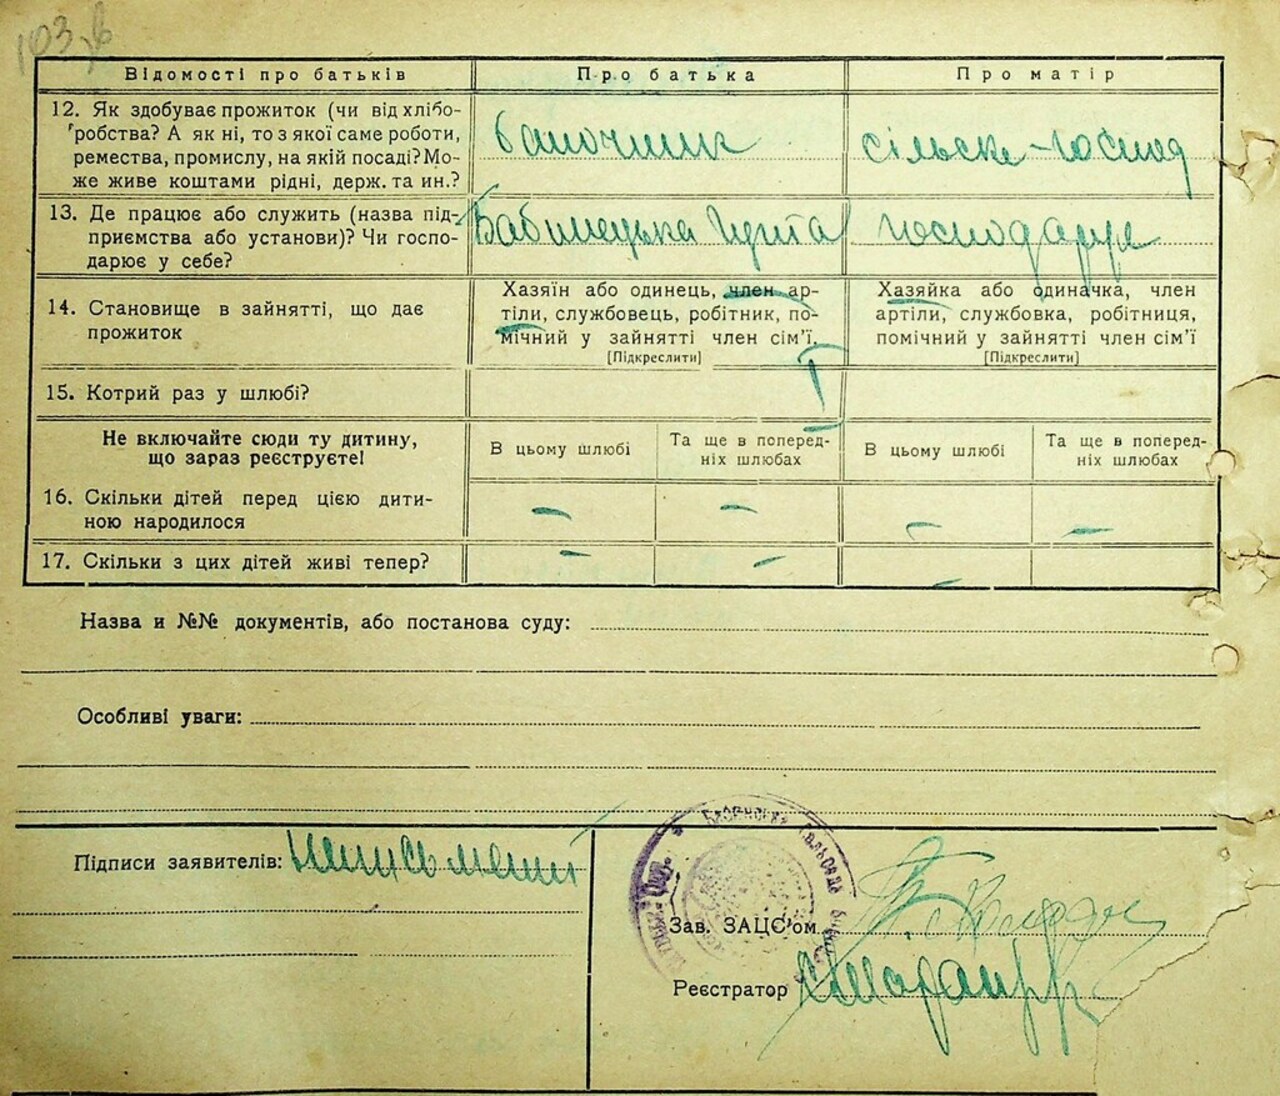 103
Відомості про батьків
Про батька
Про матір
12. Як здобуває прожиток (чи від хлібо-
робства? А як ні, то з якої саме роботи,
ремества, промислу, на якій посаді? Мо-
же живе коштами рідні, держ. та ин.?
баночник
сільське-господ
13. Де працює або служить (назва під-
приємства або установи)? Чи госпо-
дарює у себе?
Бабинецька Гута
господарює
14. Становище в зайнятті, що дає
прожиток
Хазяїн або одинець, член ар-
тіли, службовець, робітник, по-
мічний у зайнятті член сім'ї.
[Підкреслити]
Хазяйка або одиначка, член
артіли, службовка, робітниця,
помічний у зайнятті член сім'ї
[Підкреслити]
15. Котрий раз у шлюбі?
I
Не включайте сюди ту дитину,
що зараз реєструєте!
В цьому шлюбі
Та ще в поперед-
ніх шлюбах
В цьому шлюбі
Та ще в поперед-
ніх шлюбах
16. Скільки дітей перед цією дити-
ною народилося
– – – –
17. Скільки з цих дітей живі тепер?
– – –
Назва и №№ документів, або постанова суду:
Особливі уваги:
Підписи заявителів: неписьмений
Зав. ЗАЦС'ом
Реєстратор